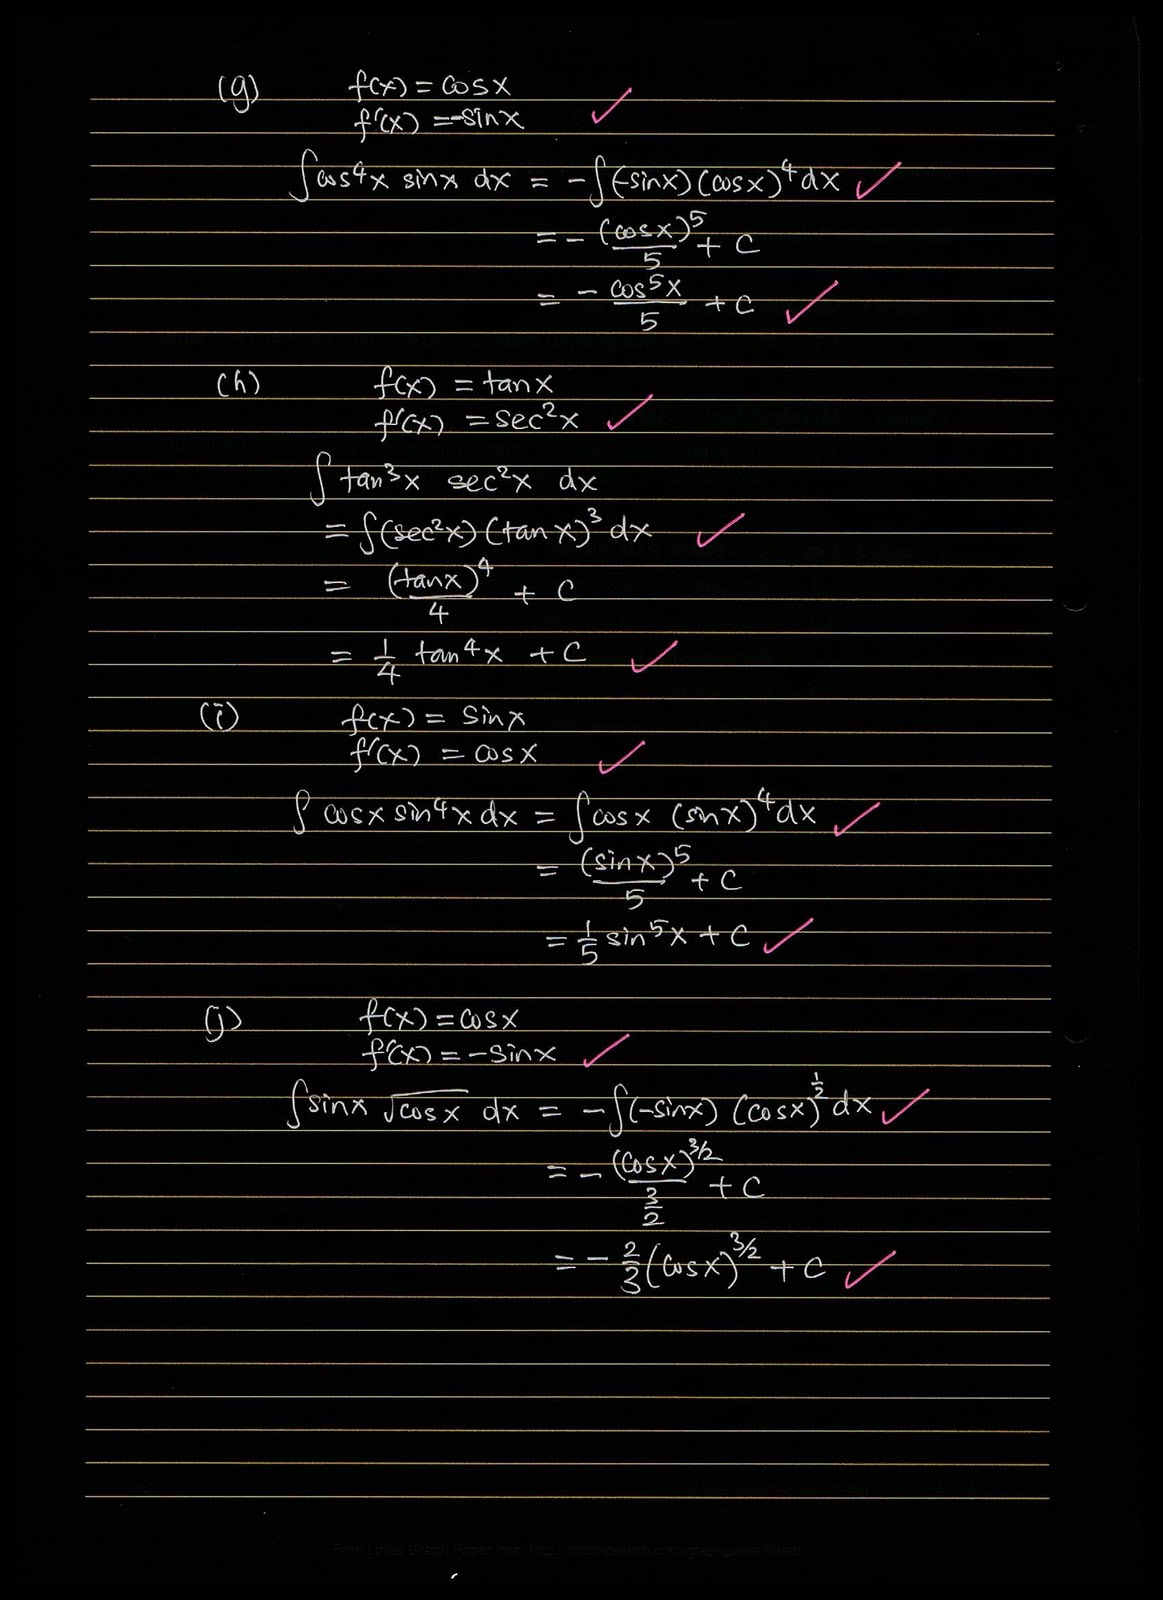 (g) f(x) = cosx
f'(x) = -sinx
∫cos⁴x sinx dx = -∫(-sinx)(cosx)⁴dx
= - (cosx)⁵/5 + C
= - cos⁵x/5 + C
(h) f(x) = tanx
f'(x) = sec²x
∫ tan³x sec²x dx
= ∫(sec²x)(tanx)³dx
= (tanx)⁴/4 + C
= 1/4 tan⁴x + C
(i) f(x) = sinx
f'(x) = cosx
∫ cosx sin⁴x dx = ∫cosx (sinx)⁴dx
= (sinx)⁵/5 + C
= 1/5 sin⁵x + C
(j) f(x) = cosx
f'(x) = -sinx
∫sinx √cosx dx = -∫(-sinx) (cosx)^1/2 dx
= - (cosx)^3/2 / 3/2 + C
= - 2/3 (cosx)^3/2 + C